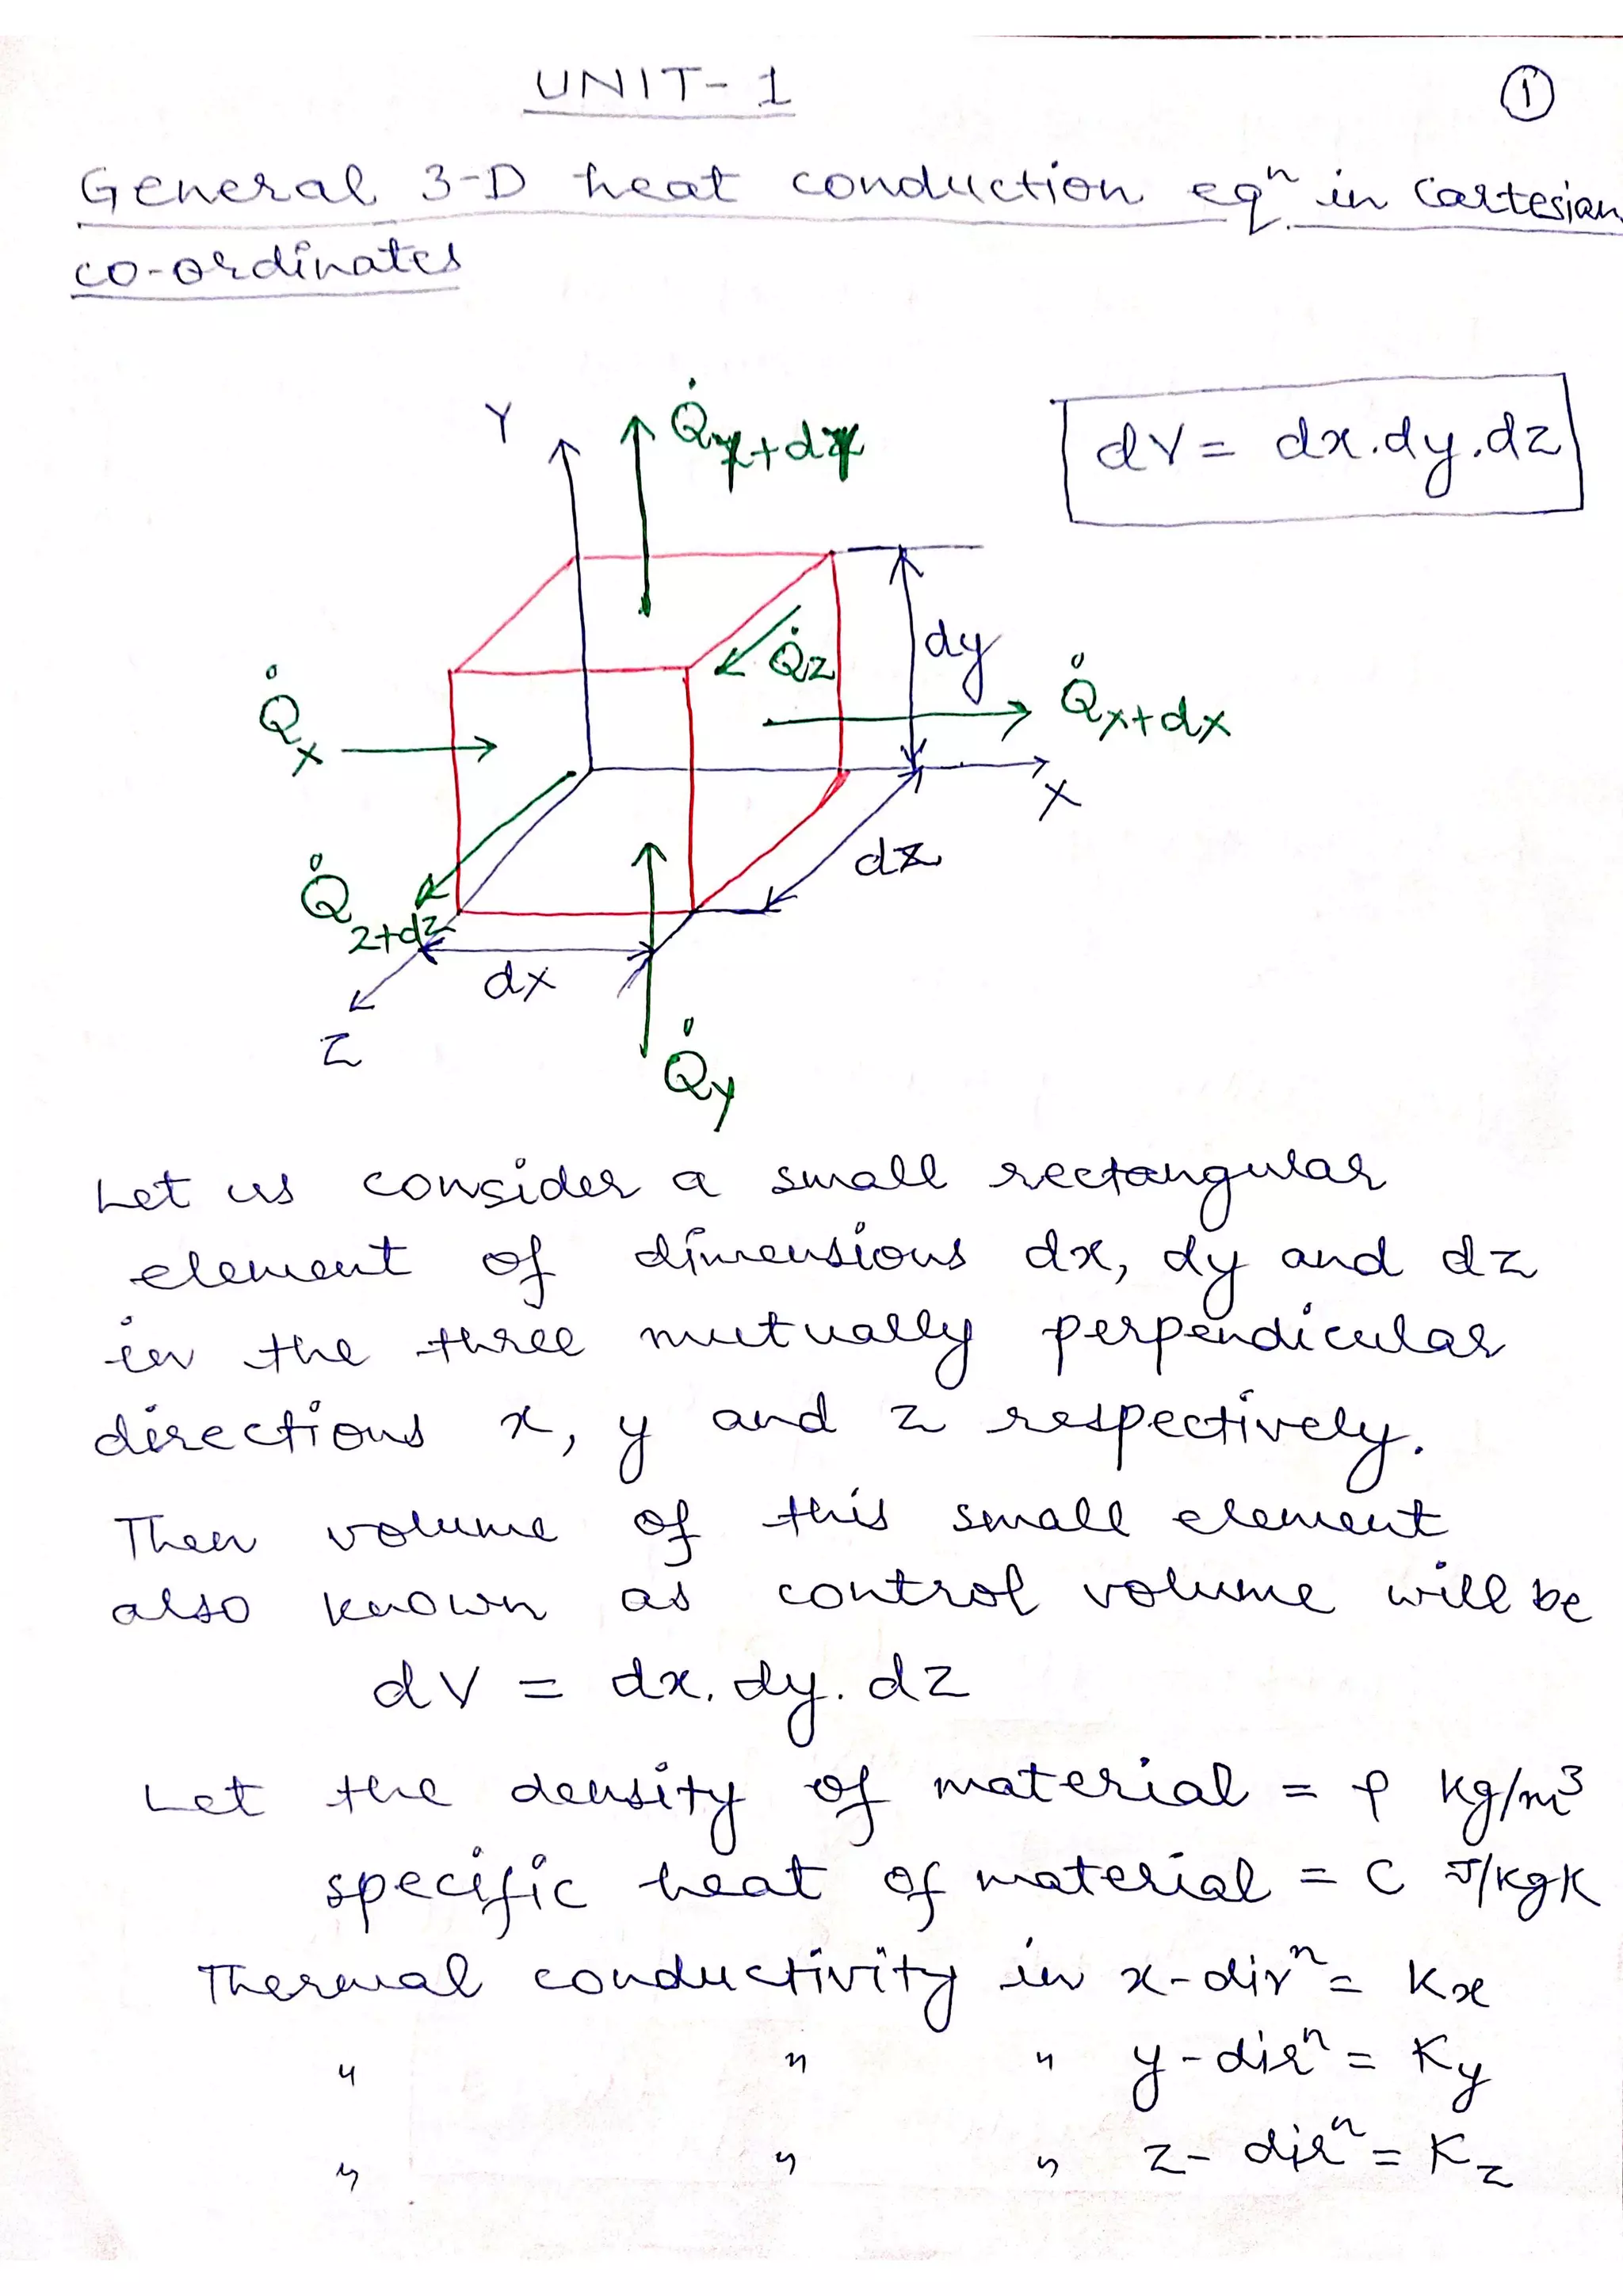 UNIT-1
①
General 3-D heat conduction eqⁿ in Cartesian
co-ordinates
Y
Q̇y+dy
dV = dx.dy.dz
dy
Q̇z
Q̇x
Q̇x+dx
X
dz
Q̇z+dz
dx
Z
Q̇y
Let us consider a small rectangular
element of dimensions dx, dy and dz
in the three mutually perpendicular
directions x, y and z respectively.
Then volume of this small element
also known as control volume will be
dV = dx. dy. dz
Let the density of material = ρ kg/m³
specific heat of material = C J/kgK
Thermal conductivity in x-dirⁿ = Kx
" " " y-dirⁿ = Ky
" " " z-dirⁿ = Kz